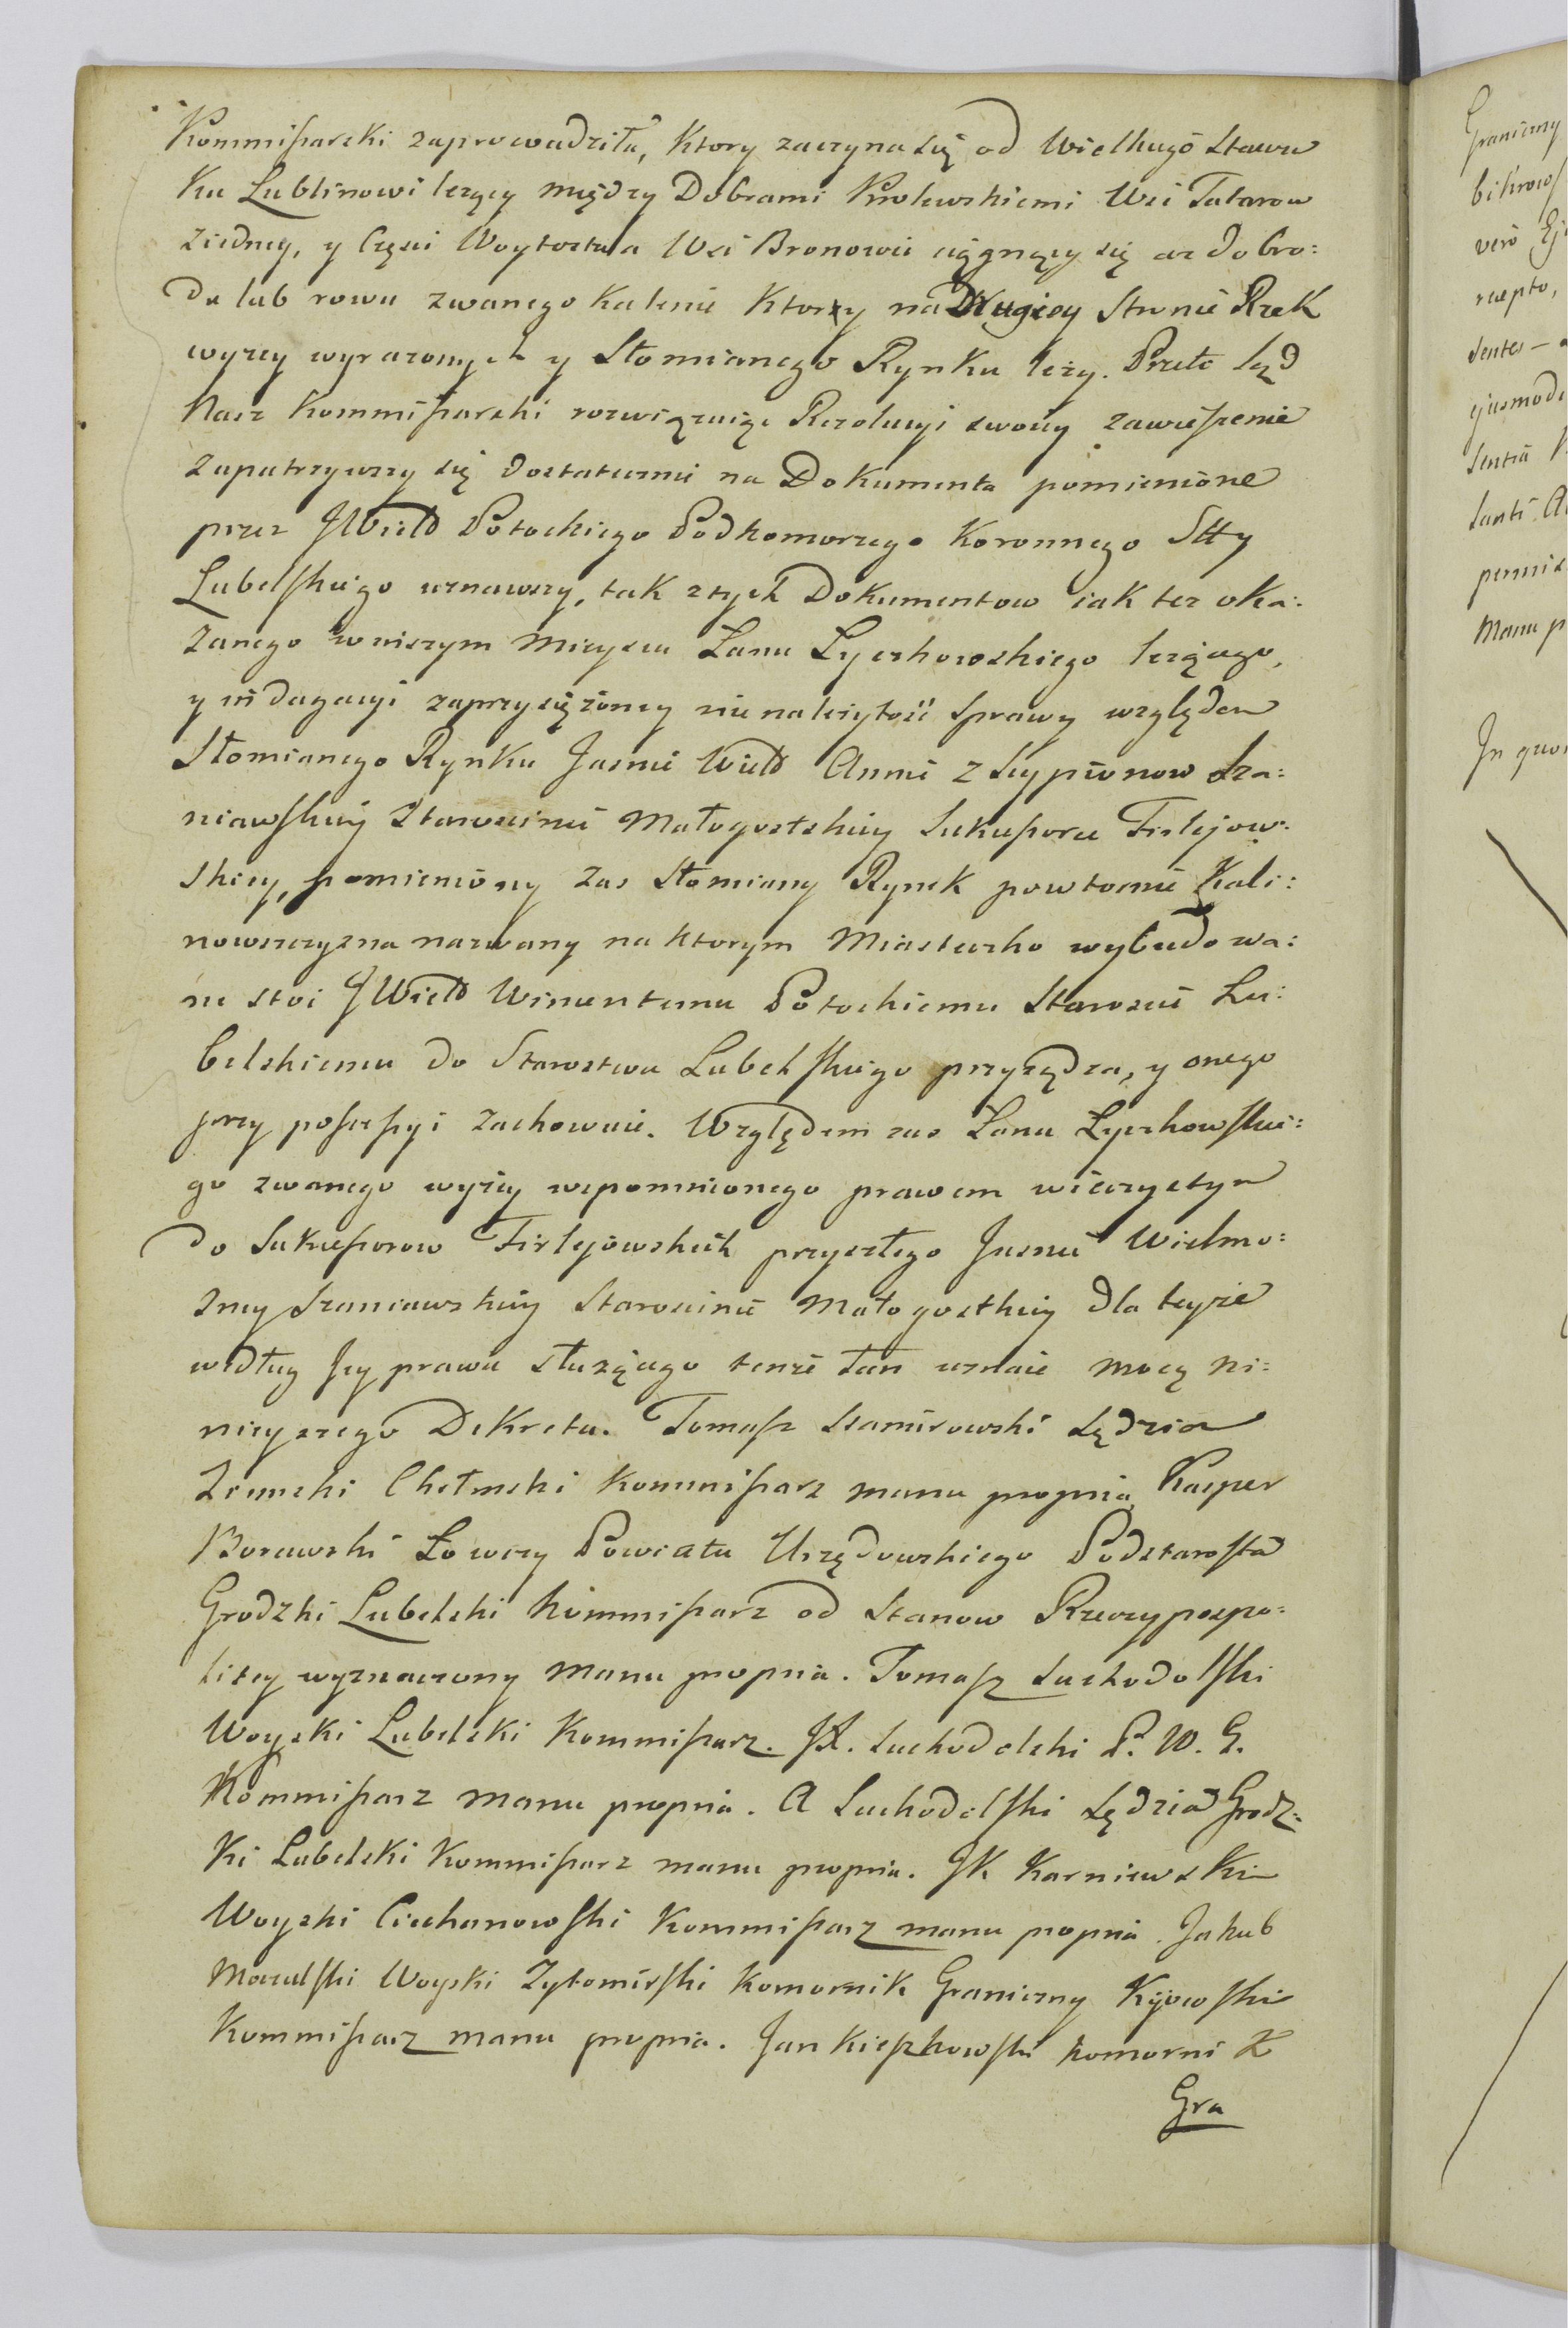 Kommißarski zaprowadziła, Ktory zaczyna się od Wielkiego Stawu
Ku Lublinowi lezący między Dobrami Krolewskiemi Wsi Tatarow
z iedney, y Częsci Woytostwa Wsi Bronowic ciągnący się az do bro:
du lub rowu zwanego Kalenie Ktorzy na Drugiey Stronie Rzek
wyzey wyrazonych y Słomianego Rynku lezy. Przeto Sąd
Nasz Kommißarski rozwiązuiąc Rezolucyi swoiey zawießenie
zapatrzywszy się dostatecznie na Dokumenta pomienione
przez JWielo Potockiego Podkomorzego Koronnego Stty
Lubelskiego uznawszy, tak z tych Dokumentow iak tez oka:
zanego w niszym mieyscu Łanu Łyczkowskiego lezącego,
y indagacyi zaprzysiężoney nienalezytość sprawy względem
Słomianego Rynku Jasnie Wielo Annie z Scypionow Sza:
niawskiey Starościnie Małogostskiey Sukceßorce Firlejow:
skiey, pomieniony zas Słomiany Rynek powtornie Kali:
nowszczyzna nazwany na ktorym Miasteczko wybudowa:
ne stoi JWielo Wincentemu Potockiemu Staroscie Lu:
belskiemu do Starostwa Lubelskiego przysądza, y onego
przy poßeßyi zachowuie. Względem zas Łanu Łyczkowskie:
go zwanego wyzey wspomnionego prawem wieczystym
do Sukceßorow Firlejowskich przyszłego Jasnie Wielmo:
zney Szaniawskiey Starościnie Małogostkiey dla teyze
według Jey prawa słuzącego tenze Łan uznaie mocą ni:
nieyszego Dekretu. Tomaß Stamirowski Sędzia
Ziemski Chełmski Kommißarz manu propria Kasper
Borawski Łowczy Powiatu Urzędowskiego Podstarosta
Grodzki Lubelski Kommißarz od Stanow Rzeczypospo:
litey wyznaczony manu propria. Tomaß Suchodolski
Woyski Lubelski Kommißarz. JA. Suchodolski P. W. G.
Kommißarz manu propria. A Suchodolski Sędzia Grodz:
ki Lubelski Kommißarz manu propria. JK Karniewski
Woyski Ciechanowski Kommißarz manu propria. Jakub
Woyski Zytomirski Komornik Graniczny Kijowski
Kommißarz manu propria. Jan Kießkowski Komornik
Gra
Graniczny
vero
recepto,
ejusmodi
Manu
In quo